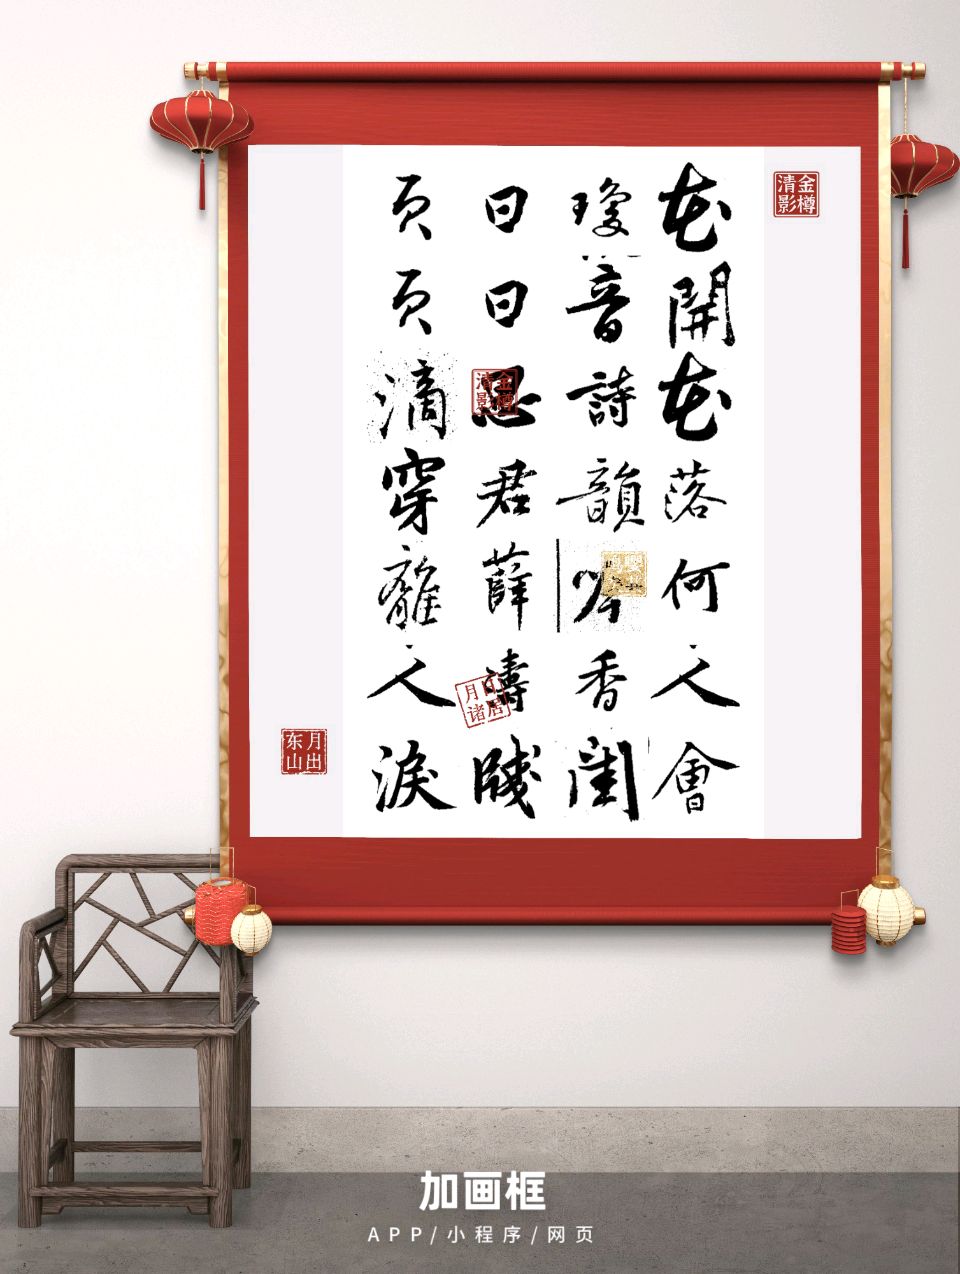 花開花落何人會
瓊音詩韻吟香閨
日日思君薛濤牋
页页滴穿離人淚
金樽
清影
金樽
清影
日居
月诸
月出
东山
加画框
APP/小程序/网页